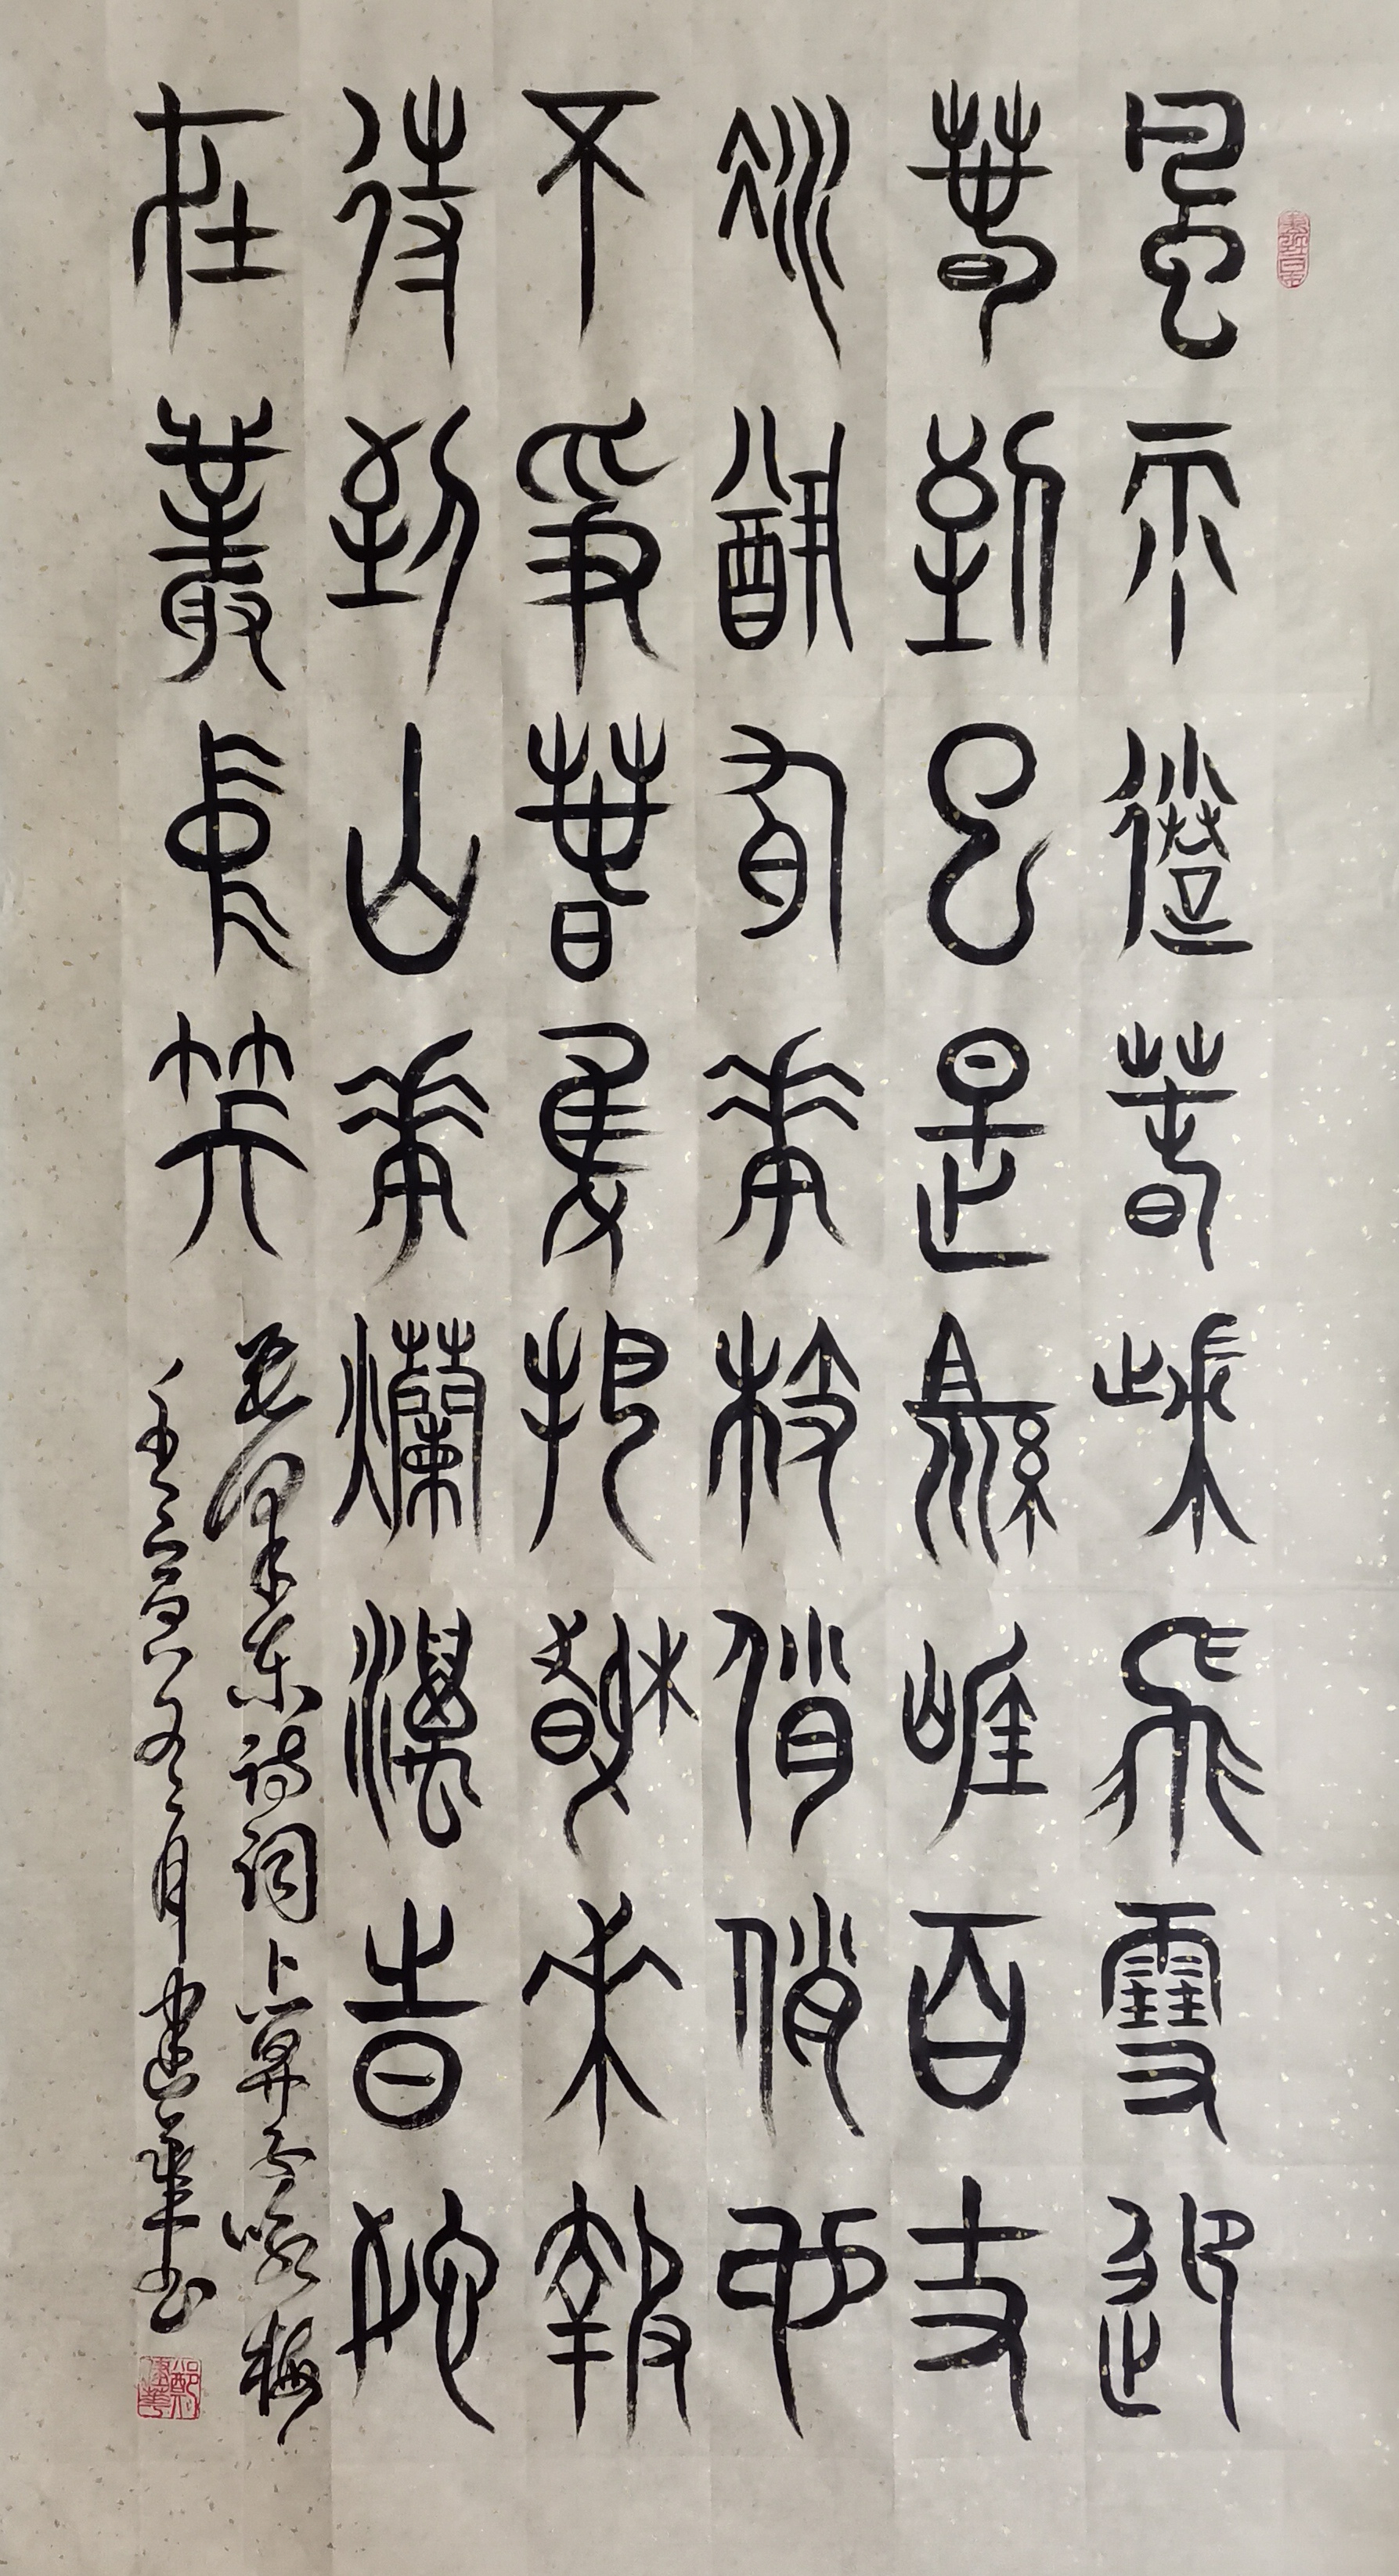 風雨送春歸飛雪迎
春到已是懸崖百丈
冰猶有花枝俏俏也
不爭春隻把春來報
待到山花爛漫時她
在叢中笑
毛泽东诗词卜算子咏梅
壬寅冬月建華书